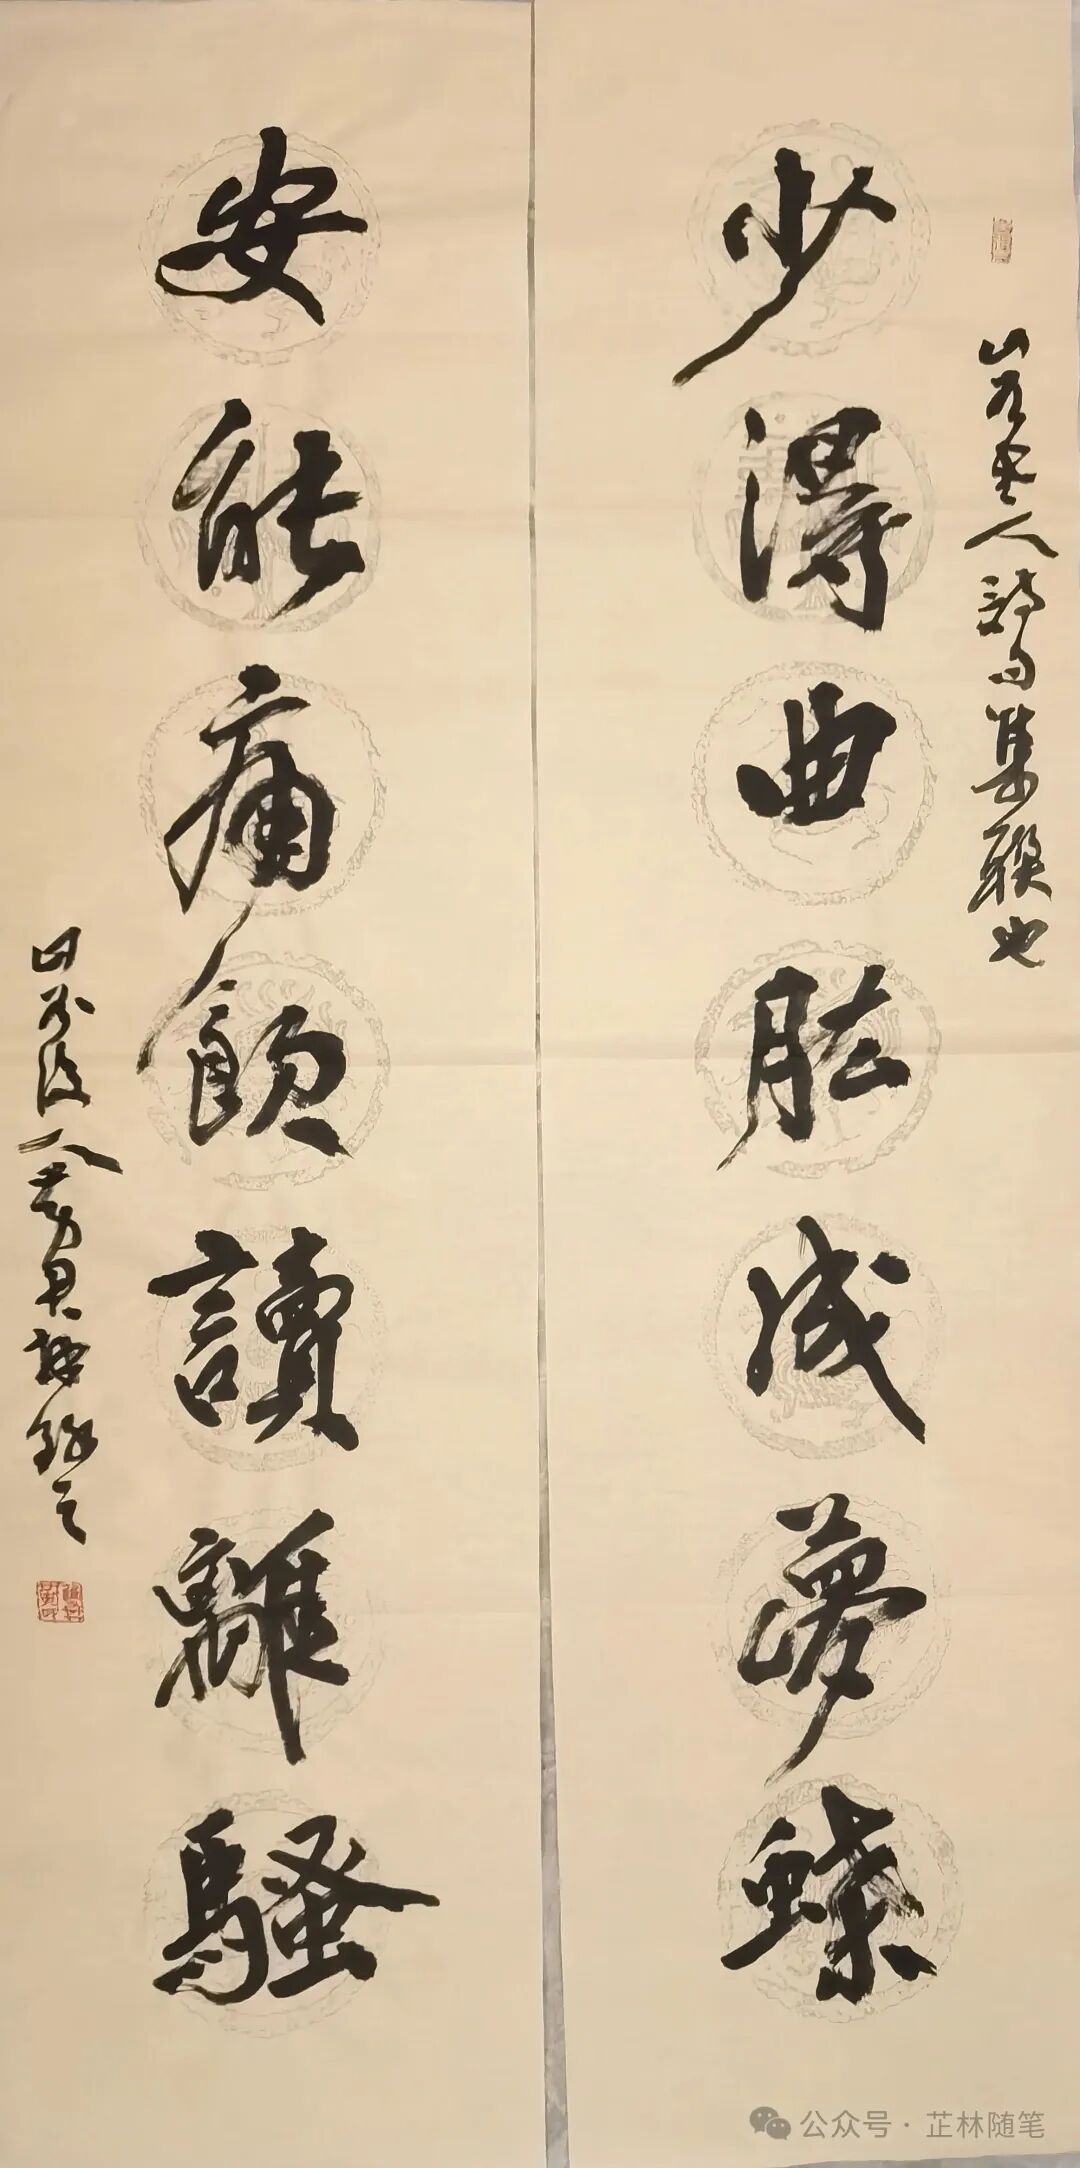 少得曲肱成夢蝶
山谷老人詩句集聯也
安能痛飲讀離騷
公众号·芷林随笔